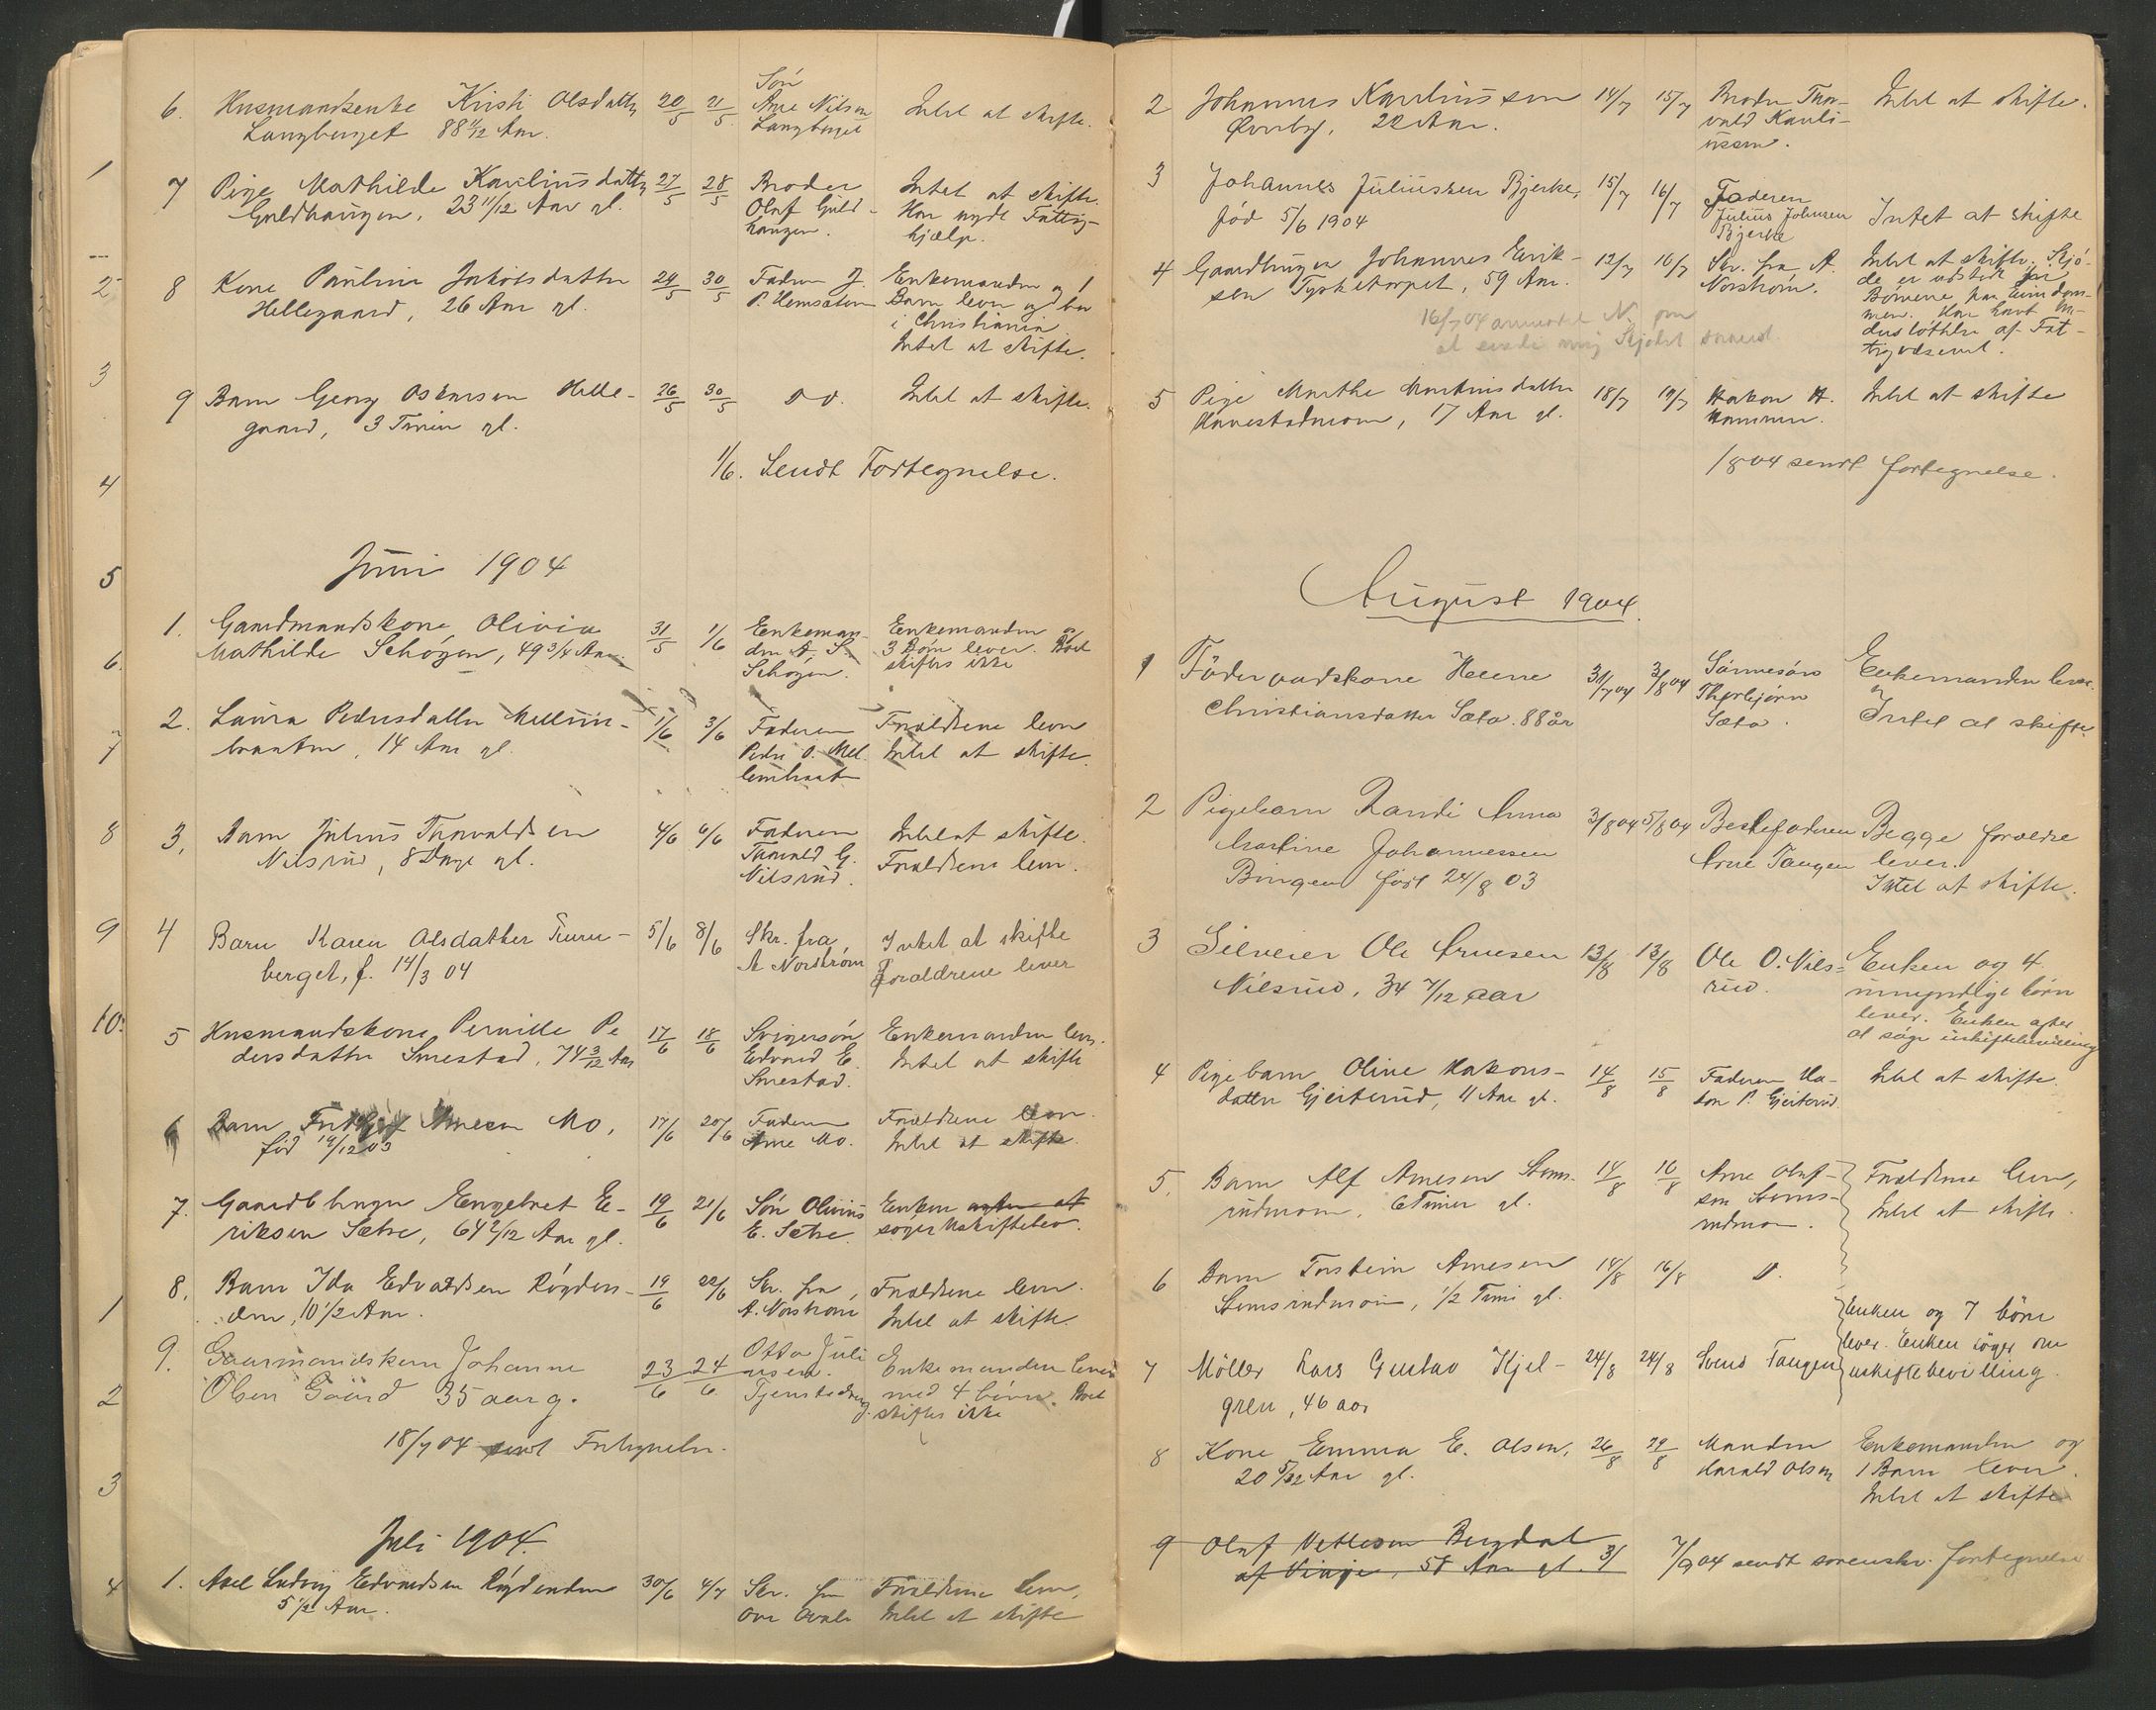 6. Husmandsenke Kristi Olsdatter 20/5 21/5 Sön Arne Nilsen Langberget Intet at skifte.
Langberget 88 11/12 Aar.
7 Pige Mathilde Karlinusdatter 27/5 28/5 Broder Olaf Guldhaugen. Intet at skifte. Har nydt Fattighjælp.
Guldhaugen, 23 11/12 Aar gl.
8 Kone Pauline Jakobsdatter 24/5 30/5 Faderen J. P. Enkemanden og 1 Barn lever og bor i Christiania
Hellegaard, 26 Aar gl. Intet at skifte.
9 Barn Georg Oskarsen Helle- 26/5 30/5 Do. Intet at skifte.
gaard, 3 Timer gl.
1/6. Sendt Fortegnelse.
Juni 1904
1. Gaardmandskone Olivia 31/5 1/6 Enkemanden A. S. Schøgen. Enkemanden og 3 Börn lever. Boet skiftes ikke
Mathilde Schøgen, 49 3/4 Aar.
2. Laura Pedersdatter Mellem- 1/6 3/6 Faderen Peder O. Mellembraat Forældrene lever Intet at skifte.
braaten, 14 Aar gl.
3. Barn Julius Thorvaldsen 4/6 6/6 Faderen Thorvald G. Nilsrud. Intet at skifte. Forældrene lever.
Nilsrud, 8 Dage gl.
4 Barn Karen Olsdatter Furu- 5/6 8/6 Skr. fra A Norström Intet at skifte Forældrene lever
berget, f. 14/3 04
5 Husmandskone Pernille Pe 17/6 18/6 Svigersön Edvard E. Smestad. Enkemanden lever. Intet at skifte
dersdatter Smestad, 74 3/12 Aar
6 Barn Fritjof Arnesen Mo, 17/6 20/6 Faderen Arne Mo. Forældrene lever. Intet at skifte.
född 19/12 03
7. Gaardbruger Engebret E- 19/6 21/6 Sön Olinius E. Sætre. Enken agter at söger Uskiftebev.
riksen Sætre, 64 2/12 Aar gl.
8. Barn Ida Edvardsen Röyders- 19/6 22/6 Skr. fra A. Norström Forældrene lever. Intet at skifte.
den, 10 1/2 Aar.
9. Gaarmandskone Johanne 23/6 24/6 Otto Juliusen. Enkemanden lever med 4 börn. Boet skiftes ikke
Olsen Gaard 35 aar g.
18/7 04 sendt Fortegnelse.
Juli 1904.
1. Axel Ludvig Edvardsen Röydenden 30/6 4/7 Skr. fra Forældrene lever, Intet at skifte
5 1/2 Aar.
2 Johannes Karlinussen 14/7 15/7 Broder Thorvald Karlinussen. Intet at skifte.
Øverby, 22 Aar.
3 Johannes Juliussen Bjerke, 15/7 16/7 Faderen Julius Johnsen Bjerke Intet at skifte
föd 5/6 1904
4 Gaardbruger Johannes Erik- 12/7 16/7 Skr. fra A. Norström. Intet at skifte. Skjöde er udstedt til Börnene paa Eiendommen. Har havt Understöttelse af Fattigvæsenet.
sen Tysketorpet, 59 Aar.
16/7 04 anmodet N. om
at sende mig Skjödet
5 Pige Marthe Martinsdatter 18/7 19/7 Hakon H. Hammeren. Intet at skifte
17 Aar gl.
1/8 04 sendt fortegnelse.
August 1904.
1 Föderaadskone Helene 31/7 04 3/8 04 Sönnesöns Thorbjörn Sæta. Enkemanden lever. Intet at skifte.
Christiansdatter Sæta. 88 år
2 Pigebarn Randi Anna 3/8 04 5/8 04 Bestefaderen Arne Tangen Begge forældre lever. Intet at skifte.
Martine Johannessen
Bingen född 24/8 03
3 Selveier Ole Arnesen 12/8 13/8 Ole O. Nilsrud. Enken og 4 umyndige börn lever. Enken agter at söge uskiftebevilling
Nilsrud, 34 7/12 aar
4 Pigebarn Oline Hakons- 14/8 15/8 Faderen Hakon P. Gjeiterud. Intet at skifte.
datter Gjeiterud, 11 Aar gl.
5. Barn Alf Arnesen Stens- 14/8 16/8 Arne Olafsen Stensrudmoen. Forældrene lever, Intet at skifte.
rudmoen, 6 Timer gl.
6 Barn Torstein Arnesen 14/8 16/8 D.
Stensrudmoen, 1/2 Time gl.
7 Möller Lars Gustav Kjel- 24/8 24/8 Svend Tangen Enken og 7 börn lever. Enken söger om uskiftebevilling.
gren, 46 aar
8 Kone Emma E. Olsen, 26/8 29/8 Manden Harald Olsen Enkemanden og 1 Barn lever. Intet at skifte
20 5/12 Aar gl.
9 Olaf Vetlesen Bergdal
af Vinje, 58 Aar gl. 3/ 7/9 04 sendt sorenskr. fortegnelse
1
2
3
4
5
6.
7
8
9
10.
1
2
3
4